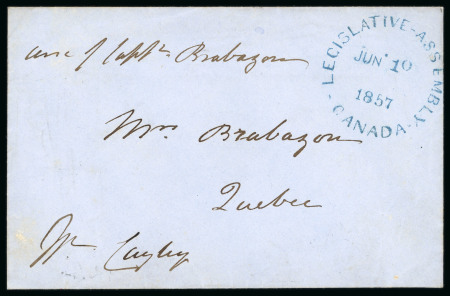 LEGISLATIVE-ASSEMBLY
JUN 10
1857
CANADA
care of Captn Brabazon
Mrs Brabazon
Quebec
Wm Cayley